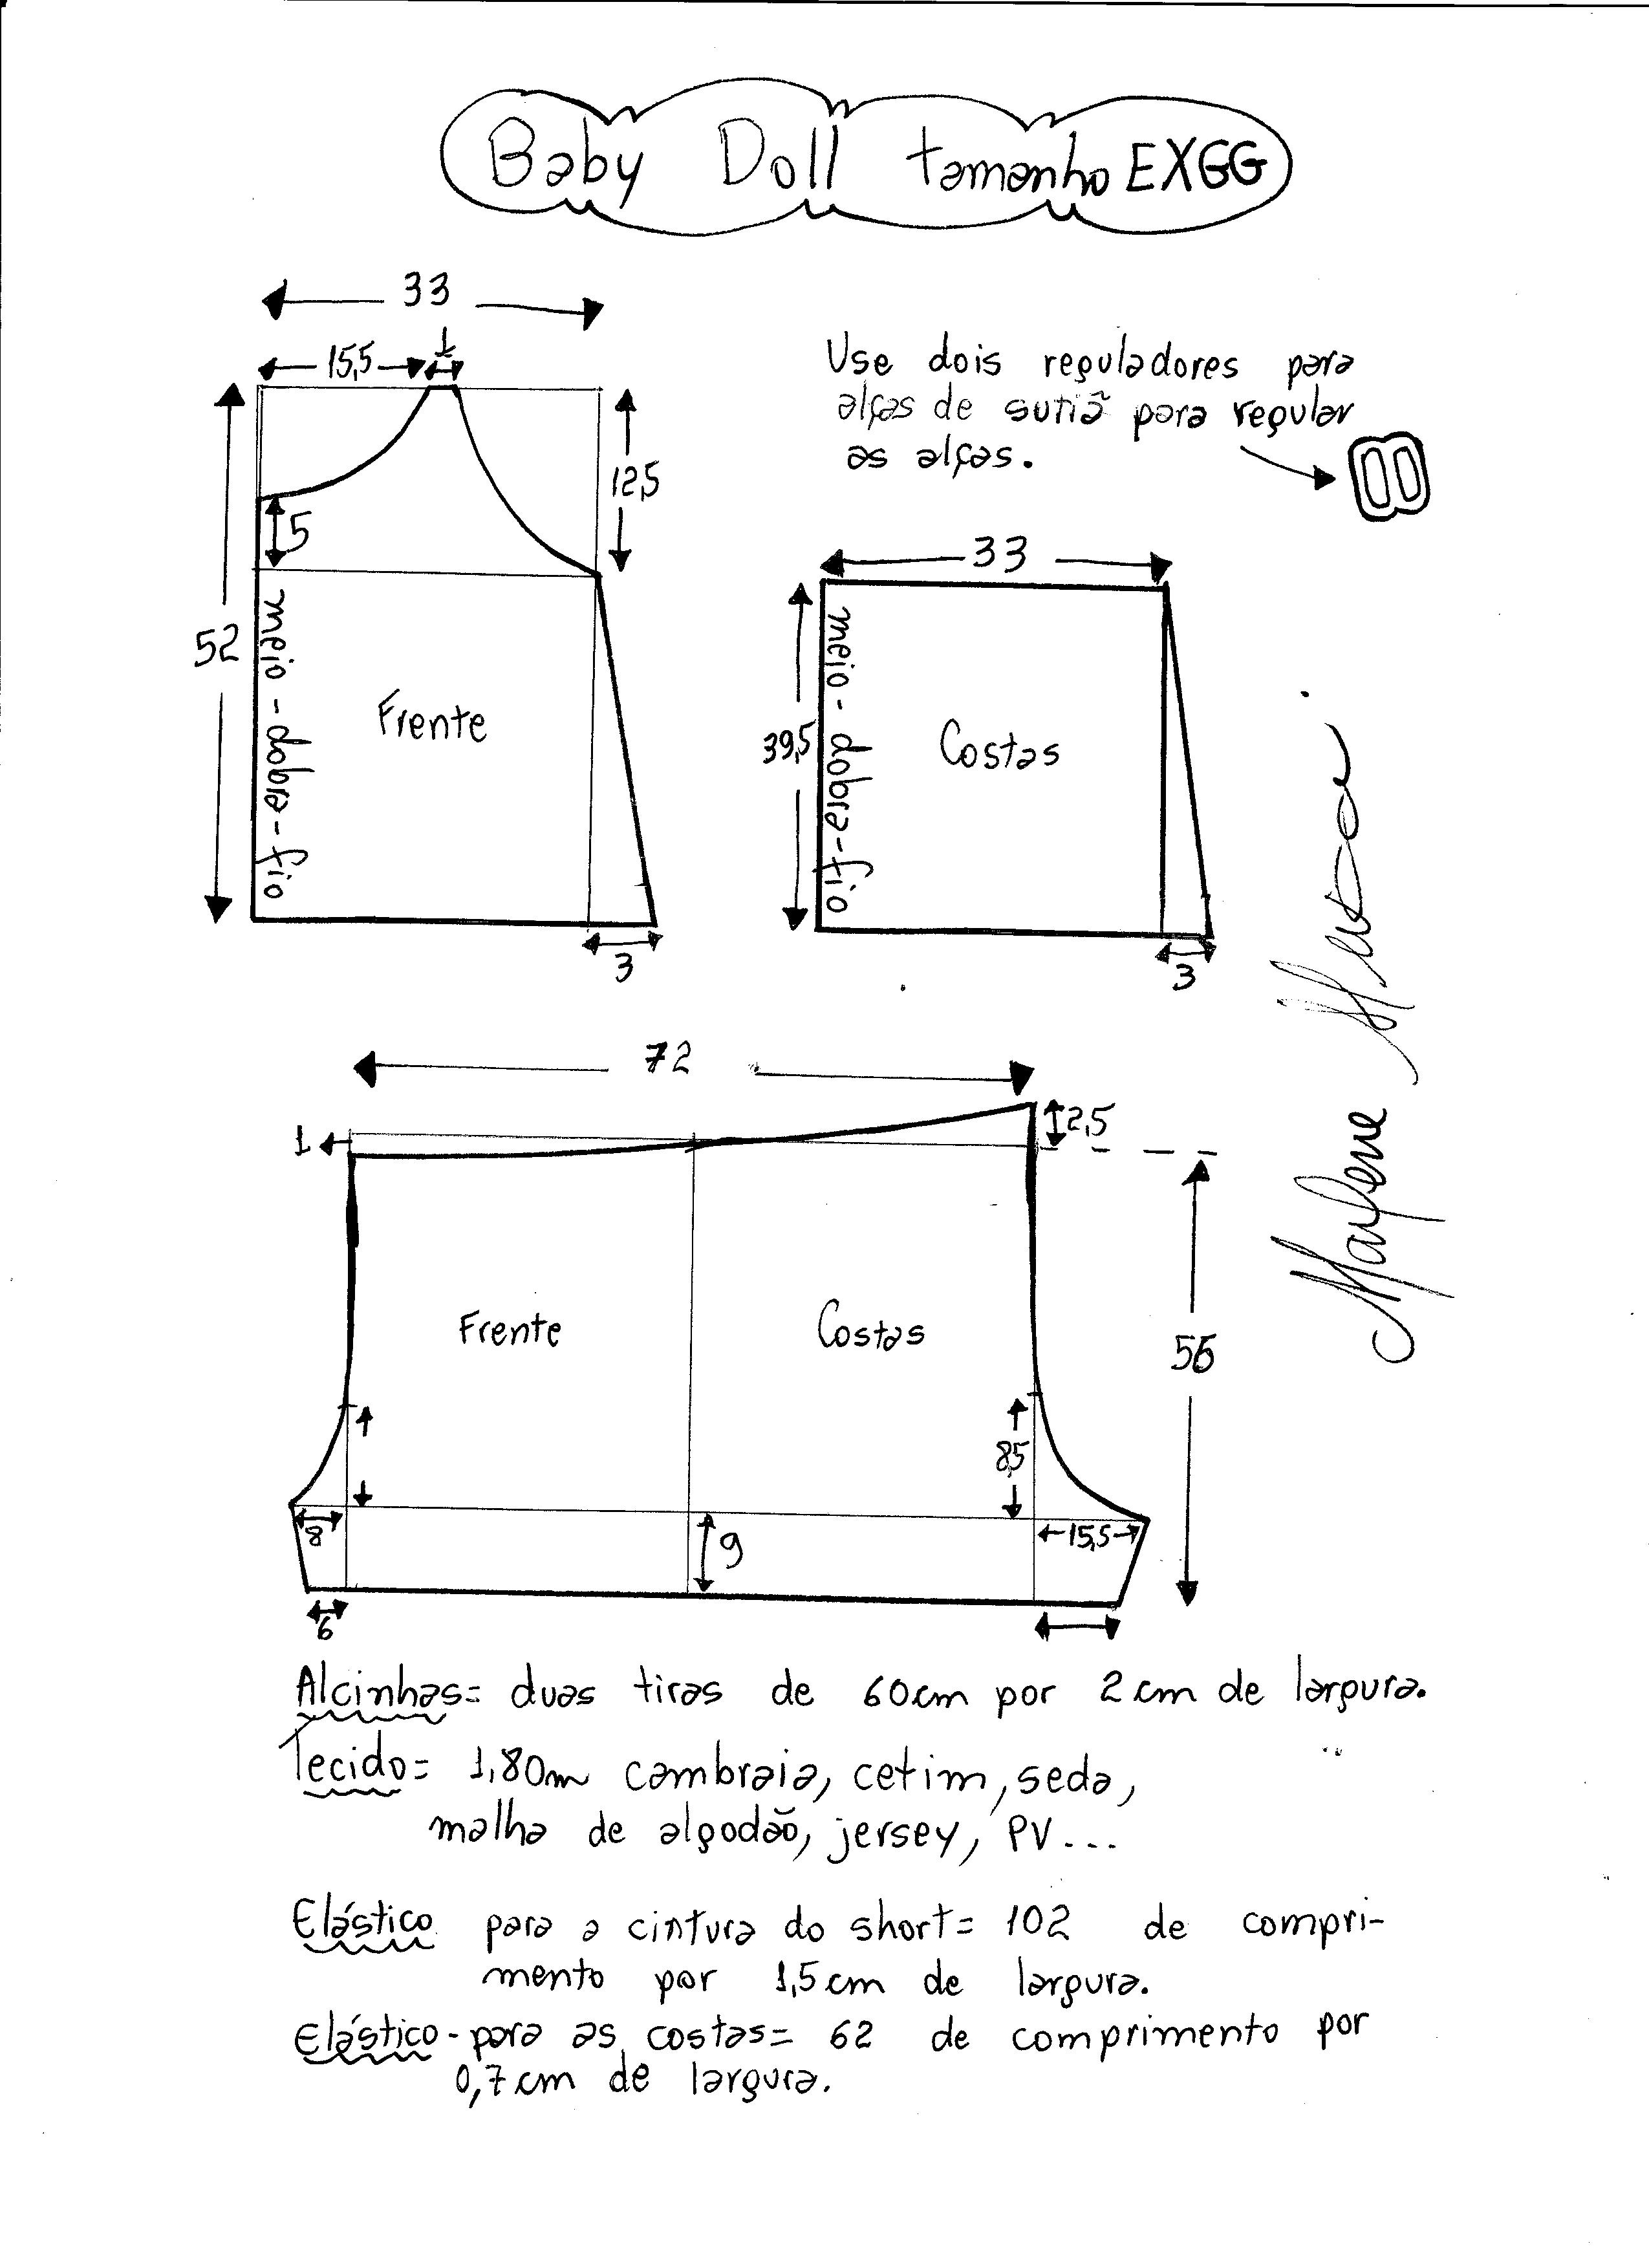 Baby Doll tamanho EXGG
33
15,5
1
Use dois reguladores para
alças de sutiã para regular
as alças.
12,5
5
33
52
meio-dobra-fio
Frente
39,5
meio-dobra-fio
Costas
3
3
72
1
2,5
Frente
Costas
56
8,5
8
9
15,5
6
Marlene
Alcinhas= duas tiras de 60cm por 2cm de largura.
Tecido= 1,80m cambraia, cetim, seda,
malha de algodão, jersey, PV...
Elástico para a cintura do short= 102 de compri-
mento por 1,5cm de largura.
Elástico-para as costas= 62 de comprimento por
0,7cm de largura.